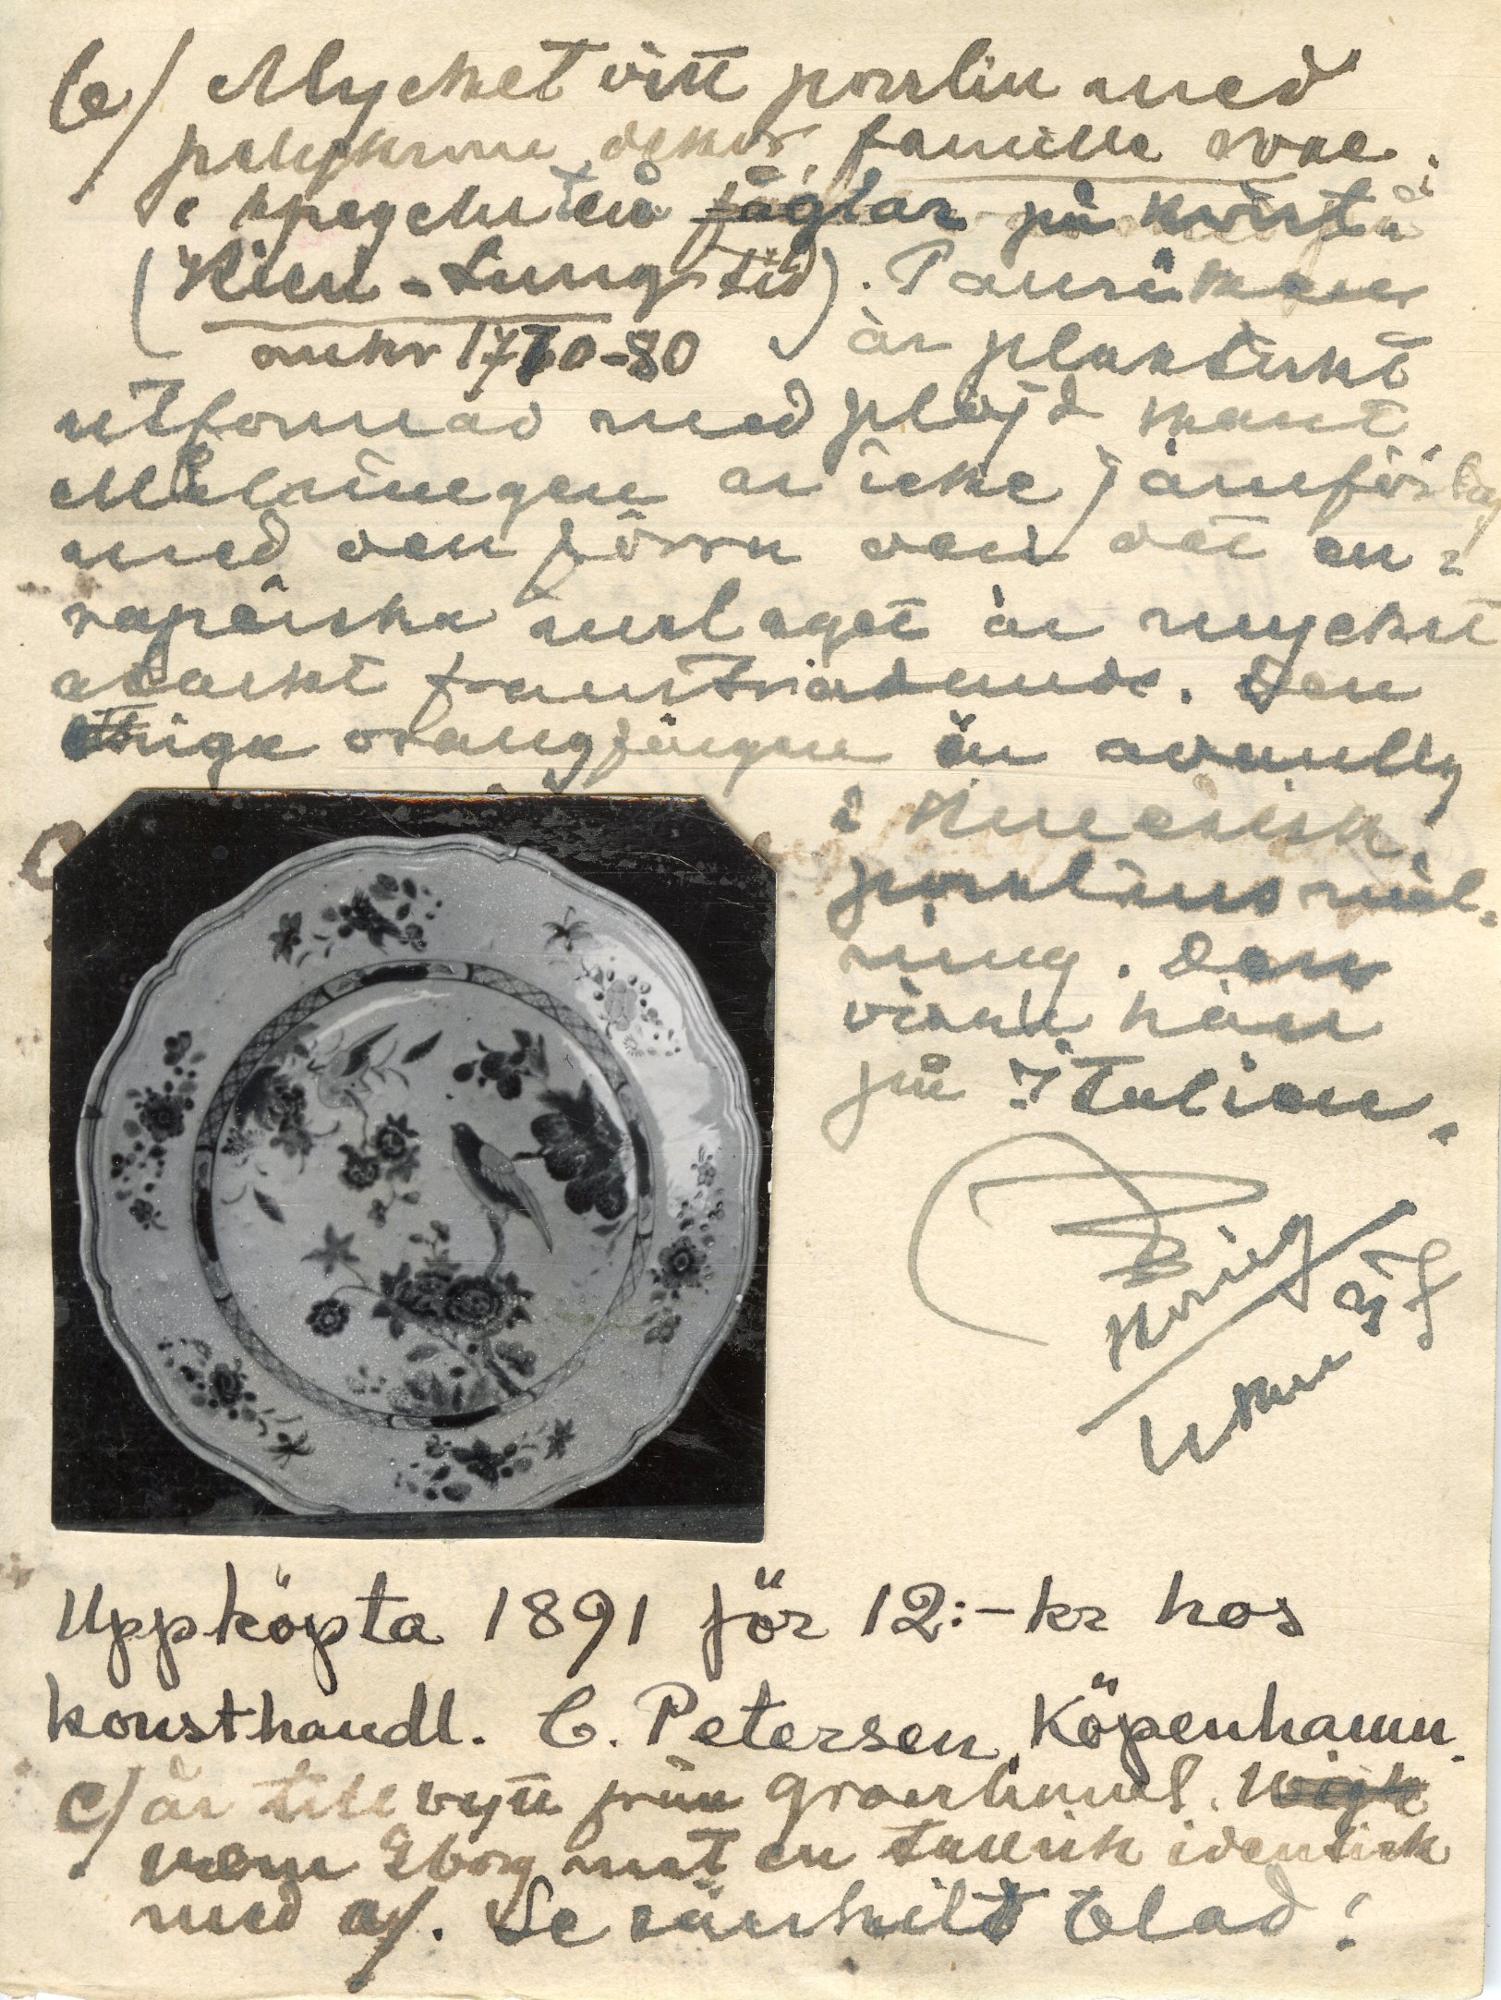 b/ Mycket vitt porslin med
polykrom dekor, famille rose.
i spegeln två fåglar på kvist
(Kien-Lung tid). Tamirkan
omkr 1770-80 är plastiskt
utformad med plöjd kant
Målningen är icke jämförbar
med den förra den det eu-
ropeiska inslaget är mycket
starkt framträdande. Den
orangfärgen är ovanlig
i kinesisk
porslinsmål-
ning. Den
visar hän
på Italien.
Uppköpta 1891 för 12:- kr hos
konsthandl. C. Petersen, Köpenhamn.
c/ är till bytt från
mot en tallrik identisk
med a/. Se särskilt blad!